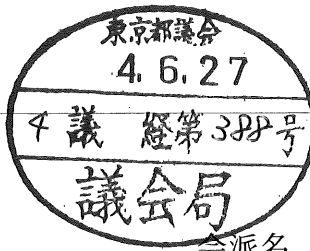 東京都議会
4.6.27
4議 経第388号
議会局
会派名